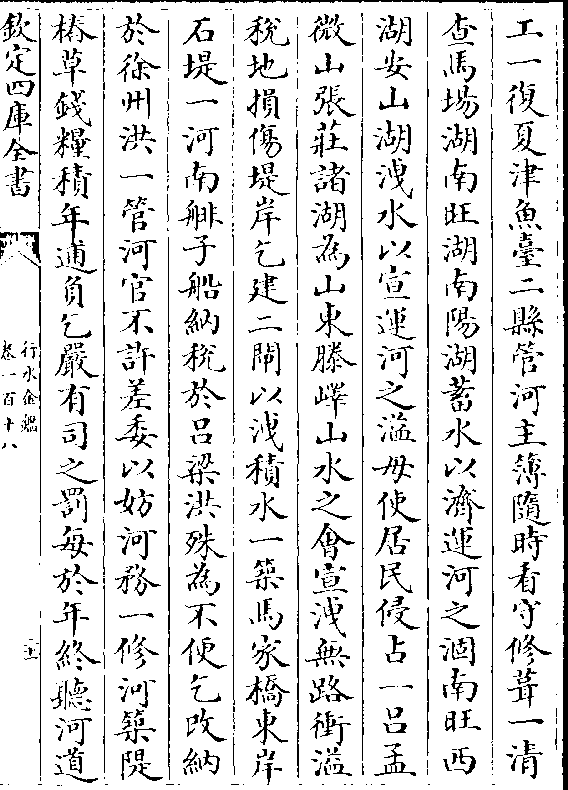 工一復夏津魚臺二縣管河主簿隨時看守修葺一清
查馬場湖南旺湖南陽湖蓄水以濟運河之涸南旺西
湖安山湖洩水以宣運河之溢毋使居民侵占一吕孟
微山張莊諸湖為山東滕嶧山水之會宣洩無路衝溢
稅地損傷堤岸乞建二閘以洩積水一築馬家橋東岸
石堤一河南艄子船納稅於吕梁洪殊為不便乞改納
於徐州洪一管河官不許差委以妨河務一修河築隄
樁草錢糧積年逋負乞嚴有司之罰每於年終聽河道
欽定四庫全書
行水金鑑
卷一百十八